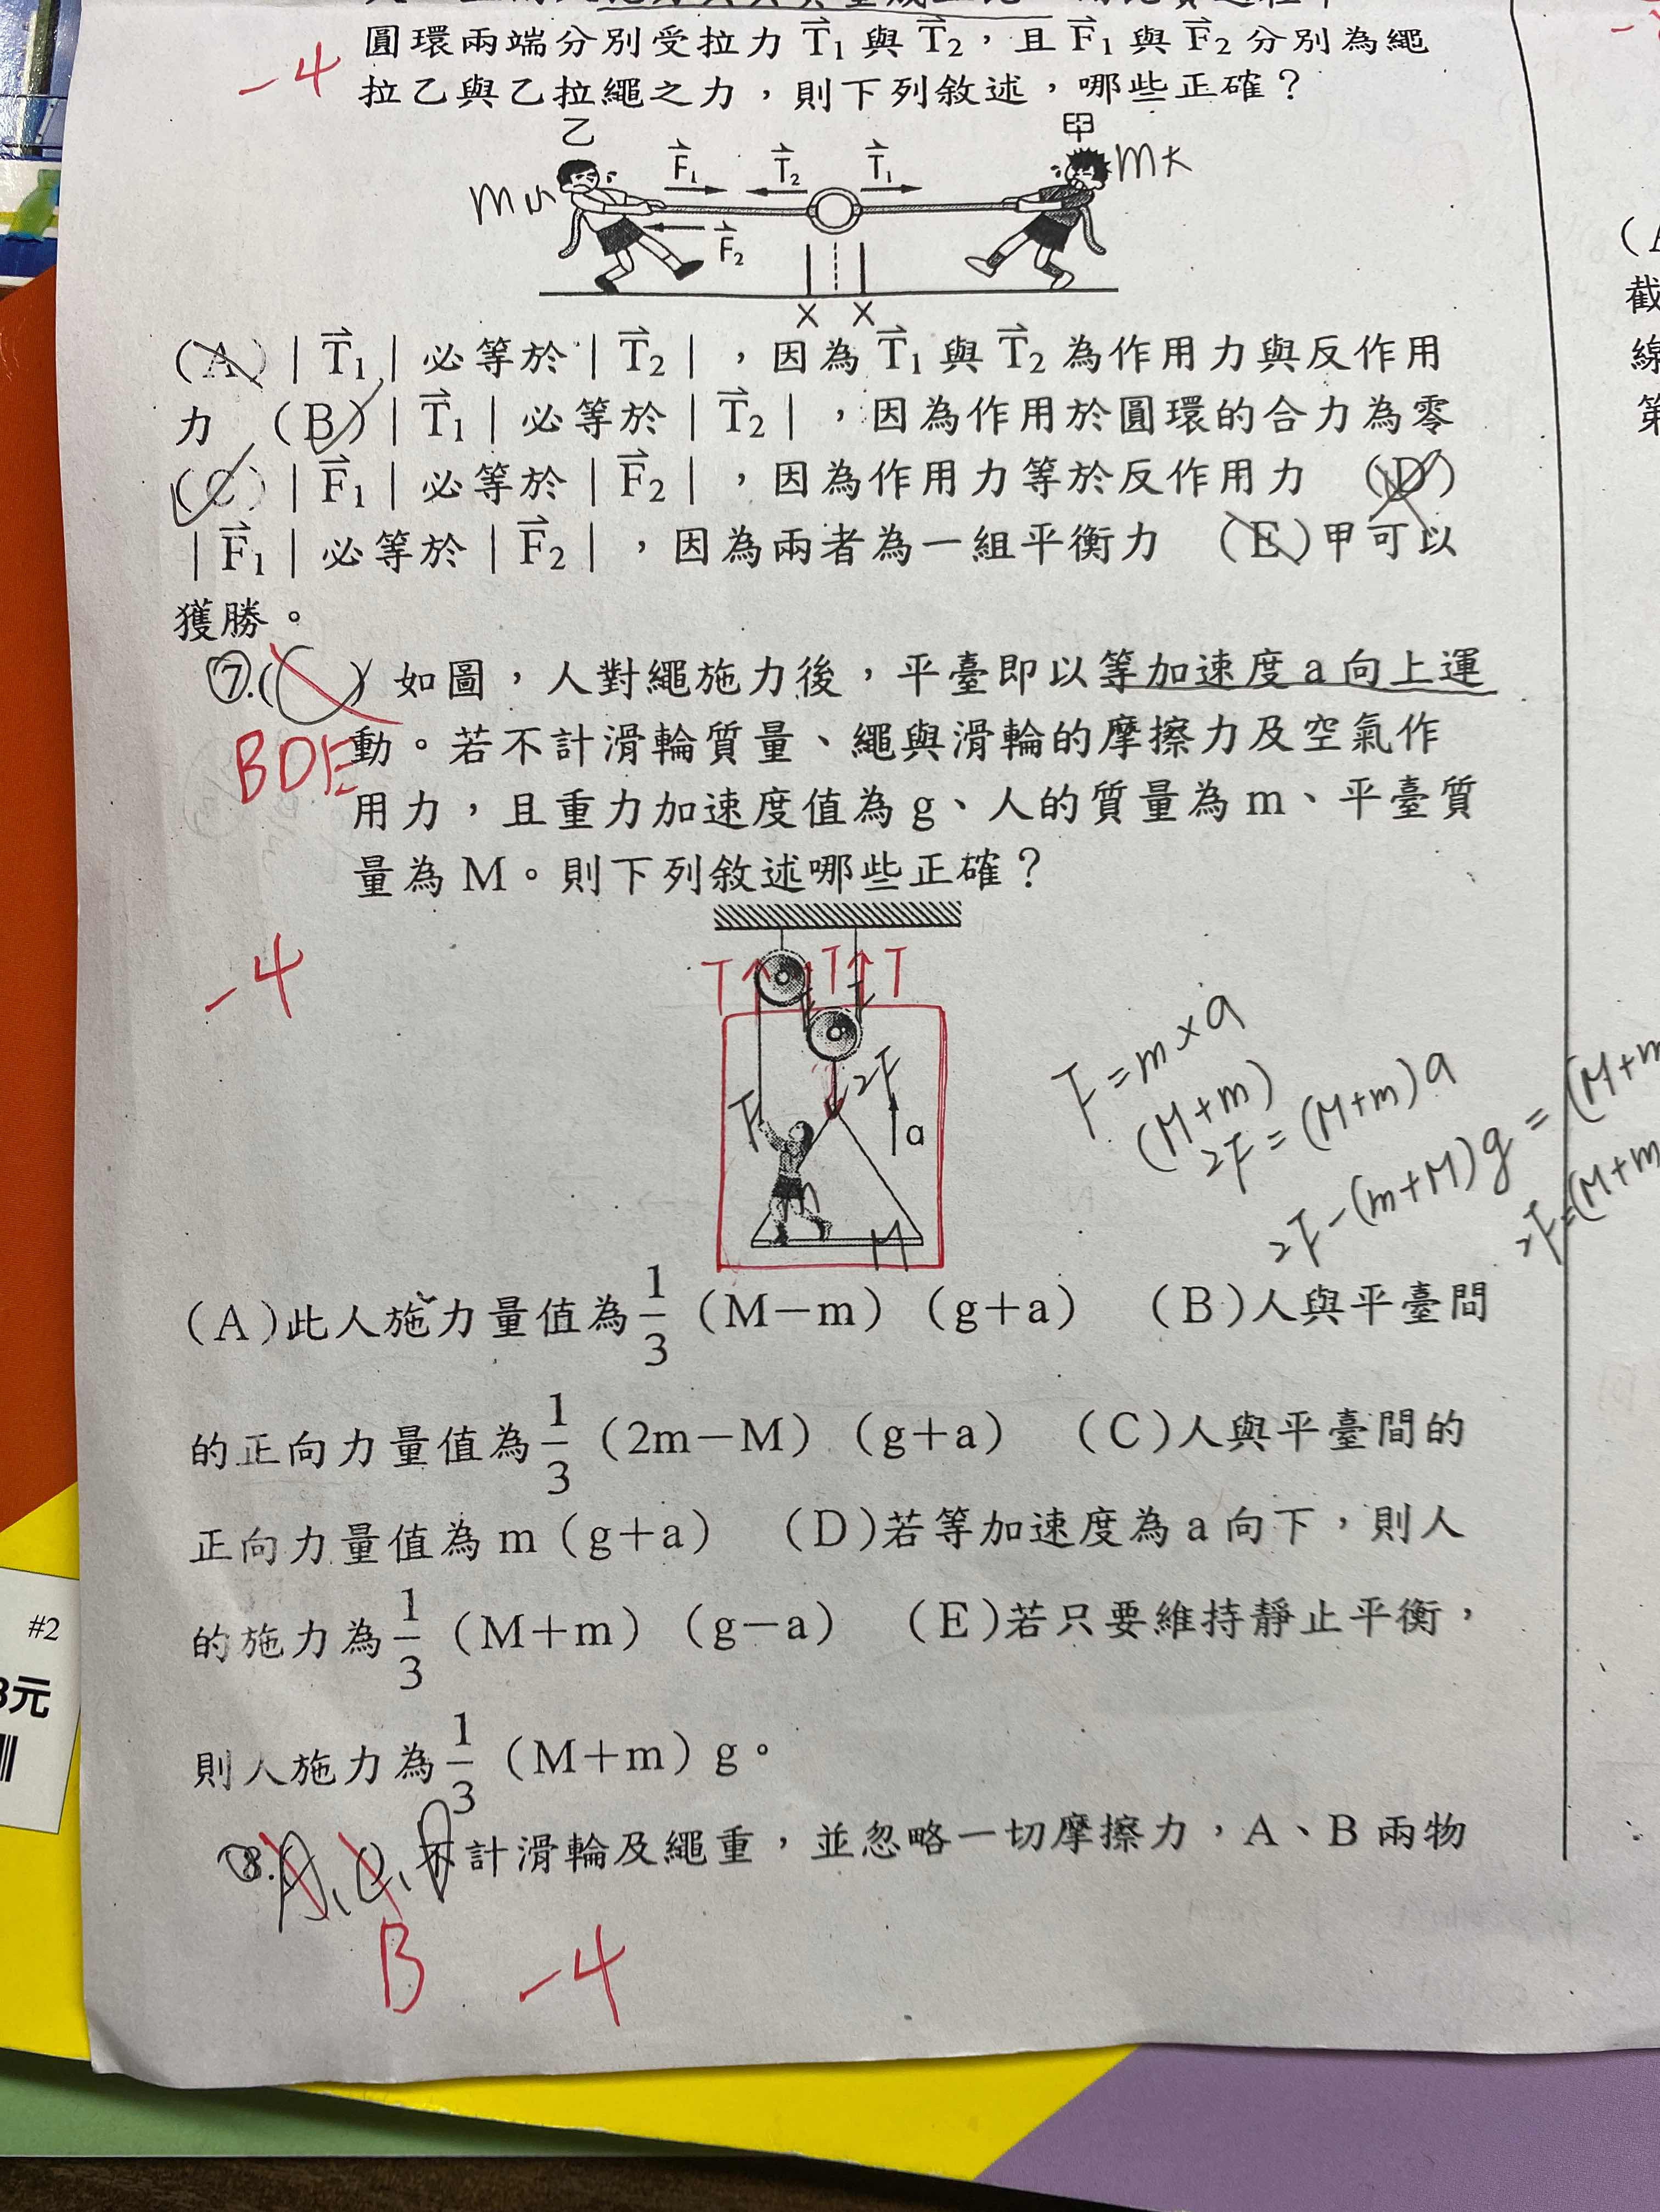 圓環兩端分別受拉力 T₁ 與 T₂，且 F₁ 與 F₂ 分別為繩
-4
拉乙與乙拉繩之力，則下列敘述，哪些正確？
乙
甲
F₁ T₂ T₁
F₂
X X
(A)｜T₁｜必等於｜T₂｜，因為 T₁ 與 T₂ 為作用力與反作用
力 (B)｜T₁｜必等於｜T₂｜，因為作用於圓環的合力為零
(C)｜F₁｜必等於｜F₂｜，因為作用力等於反作用力 (D)
｜F₁｜必等於｜F₂｜，因為兩者為一組平衡力 (E)甲可以
獲勝。
7.( ) 如圖，人對繩施力後，平臺即以等加速度 a 向上運
BDE
動。若不計滑輪質量、繩與滑輪的摩擦力及空氣作
用力，且重力加速度值為 g、人的質量為 m、平臺質
量為 M。則下列敘述哪些正確？
-4
T T T
F 2F a
M
F=m×a
(M+m)
2F=(M+m)a
2F-(m+M)g=(M+m
2F=(M+m
(A)此人施力量值為 1/3（M－m）（g＋a） (B)人與平臺間
的正向力量值為 1/3（2m－M）（g＋a） (C)人與平臺間的
正向力量值為 m（g＋a） (D)若等加速度為 a 向下，則人
的施力為 1/3（M＋m）（g－a） (E)若只要維持靜止平衡，
則人施力為 1/3（M＋m）g。
8. 不計滑輪及繩重，並忽略一切摩擦力，A、B 兩物
B -4
截
線
第
#2
元